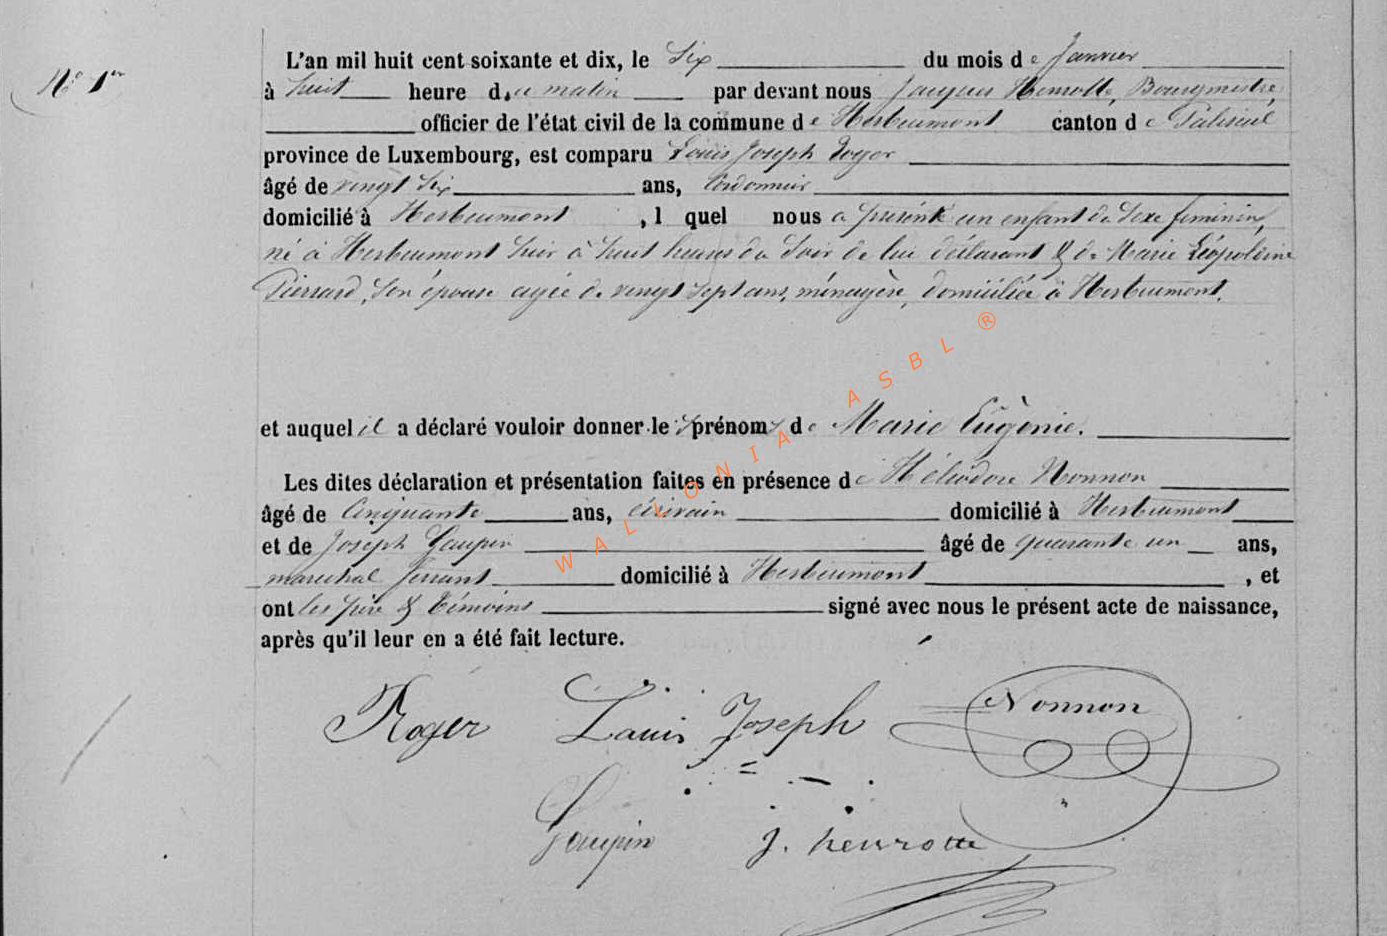 N° 1er
L'an mil huit cent soixante et dix, le Six du mois de Janvier
à huit heure du matin par devant nous Jacques Henrotte, Bourgmestre,
officier de l'état civil de la commune de Herbeumont canton de Paliseul
province de Luxembourg, est comparu Louis Joseph Roger
âgé de vingt Six ans, Cordonnier
domicilié à Herbeumont , l quel nous a présenté un enfant du Sexe féminin,
né à Herbeumont hier à huit heures du Soir de lui déclarant & de Marie Léopoldine
Pierrard, Son épouse agée de vingt Sept ans, ménagère, domiciliée à Herbeumont.
et auquel il a déclaré vouloir donner les prénoms de Marie Eugènie.
Les dites déclaration et présentation faites en présence de Héliodore Nonnon
âgé de Cinquante ans, écrivain domicilié à Herbeumont
et de Joseph Gaupin âgé de quarante un ans,
marechal ferrant domicilié à Herbeumont , et
ont les père & témoins signé avec nous le présent acte de naissance,
après qu'il leur en a été fait lecture.
Roger Louis Joseph Nonnon
Gaupin J. henrotte
WALLONIA ASBL ®